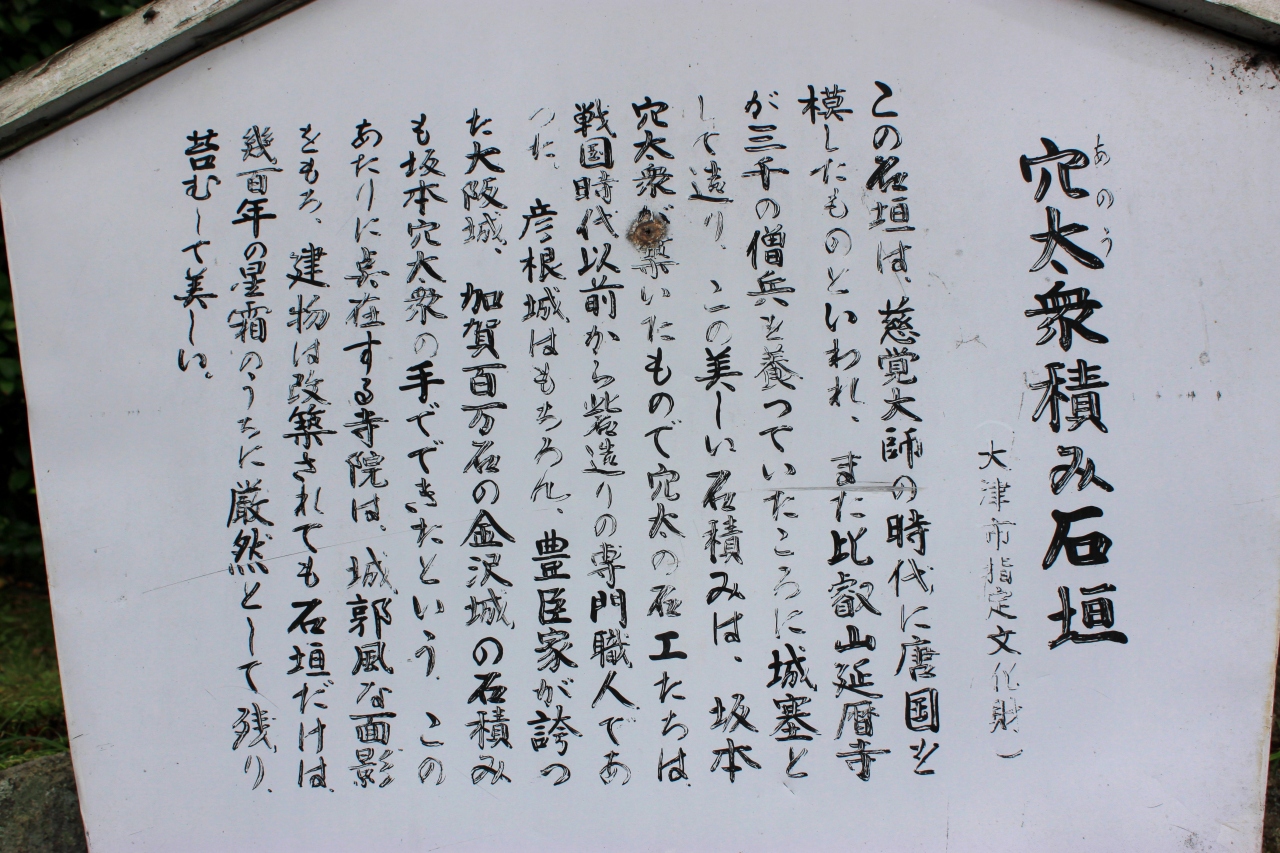 あのう
穴太衆積み石垣
(大津市指定文化財)
この石垣は、慈覚大師の時代に唐国を
模したものといわれ、また比叡山延暦寺
が三千の僧兵を養つていたころに城塞と
して造り、この美しい石積みは、坂本
穴太衆が築いたもので穴太の石工たちは
戦国時代以前から砦造りの専門職人であ
つた。彦根城はもちろん、豊臣家が誇つ
た大阪城、加賀百万石の金沢城の石積み
も坂本穴太衆の手でできたという。この
あたりに点在する寺院は、城郭風な面影
をもち、建物は改築されても石垣だけは
幾百年の星霜のうちに厳然として残り、
苔むして美しい。